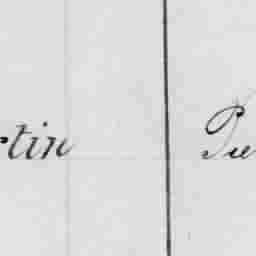 rtin Pie